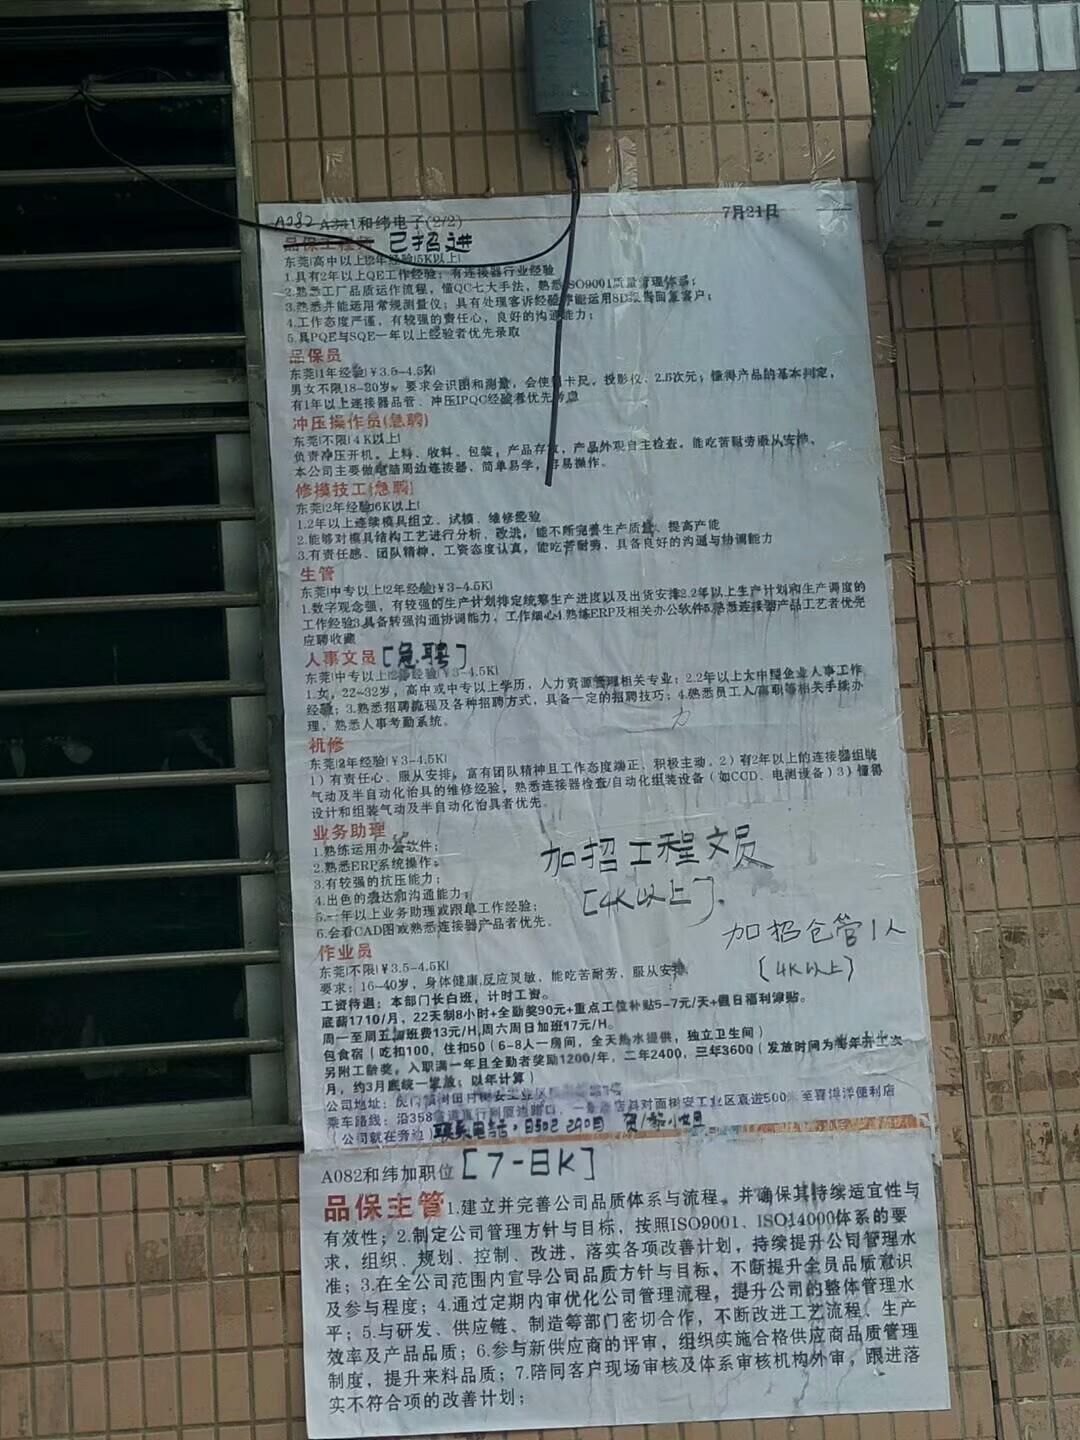 A082 A341和纬电子(2/2)
7月21日
品保工程师 已招进
东莞|高中以上|2年经验|5K以上|
1.具有2年以上QE工作经验；有连接器行业经验
2.熟悉工厂品质运作流程，懂QC七大手法，熟悉ISO9001质量管理体系；
3.熟悉并能运用常规测量仪；具有处理客诉经验并能运用8D报告回复客户；
4.工作态度严谨，有较强的责任心，良好的沟通能力；
5.具PQE与SQE一年以上经验者优先录取
品保员
东莞|1年经验|￥3.5-4.5K|
男女不限18-30岁，要求会识图和测量，会使用卡尺、投影仪、2.5次元；懂得产品的基本判定，
有1年以上连接器品管、冲压IPQC经验者优先考虑
冲压操作员(急聘)
东莞|不限|4K以上|
负责冲压开机、上料、收料、包装，产品存放，产品外观自主检查，能吃苦耐劳服从安排，
本公司主要做电脑周边连接器，简单易学，容易操作。
修模技工(急聘)
东莞|2年经验|6K以上|
1.2年以上连续模具组立、试模、维修经验
2.能够对模具结构工艺进行分析、改进，能不断完善生产质量、提高产能
3.有责任感、团队精神，工资态度认真，能吃苦耐劳，具备良好的沟通与协调能力
生管
东莞|中专以上|2年经验|￥3-4.5K|
1.数字观念强，有较强的生产计划排定统筹生产进度以及出货安排2.2年以上生产计划和生产调度的
工作经验3.具备转强沟通协调能力，工作细心4.熟练ERP及相关办公软件5.熟悉连接器产品工艺者优先
应聘收藏
人事文员[急聘]
东莞|中专以上|2年经验|￥3-4.5K|
1.女，22-32岁，高中或中专以上学历，人力资源管理相关专业；2.2年以上大中型企业人事工作
经验；3.熟悉招聘流程及各种招聘方式，具备一定的招聘技巧；4.熟悉员工入离职等相关手续办
理，熟悉人事考勤系统。
力
机修
东莞|2年经验|￥3-4.5K|
1）有责任心、服从安排，富有团队精神且工作态度端正、积极主动。2）有2年以上的连接器组装
气动及半自动化治具的维修经验，熟悉连接器检查/自动化组装设备（如CCD、电测设备）3）懂得
设计和组装气动及半自动化治具者优先。
业务助理
1.熟练运用办公软件；
2.熟悉ERP系统操作；
3.有较强的抗压能力；
4.出色的表达和沟通能力；
5.一年以上业务助理或跟单工作经验；
6.会看CAD图或熟悉连接器产品者优先。
加招工程文员
[4K以上].
加招仓管1人
(4K以上)
作业员
东莞|不限|￥3.5-4.5K|
要求：16-40岁，身体健康,反应灵敏，能吃苦耐劳，服从安排
工资待遇：本部门长白班，计时工资。
底薪1710/月，22天制8小时+全勤奖90元+重点工位补贴5-7元/天+假日福利津贴。
周一至周五加班费13元/H,周六周日加班17元/H。
包食宿（吃扣100，住扣50（6-8人一房间，全天热水提供，独立卫生间）
另附工龄奖，入职满一年且全勤者奖励1200/年，二年2400，三年3600（发放时间为每年
月，约3月底统一发放；以年计算）
公司地址：虎门镇树田村树安工业区
乘车路线：沿358省道直行 对面树安工业区直进500米至喜得洋便利店
（公司就在旁边） 联系电话：
A082和纬加职位 [7-8K]
品保主管1.建立并完善公司品质体系与流程，并确保其持续适宜性与
有效性；2.制定公司管理方针与目标，按照ISO9001、ISO14000体系的要
求，组织、规划、控制、改进，落实各项改善计划，持续提升公司管理水
准；3.在全公司范围内宣导公司品质方针与目标，不断提升全员品质意识
及参与程度；4.通过定期内审优化公司管理流程，提升公司的整体管理水
平；5.与研发、供应链、制造等部门密切合作，不断改进工艺流程、生产
效率及产品品质；6.参与新供应商的评审，组织实施合格供应商品质管理
制度，提升来料品质；7.陪同客户现场审核及体系审核机构外审，跟进落
实不符合项的改善计划；